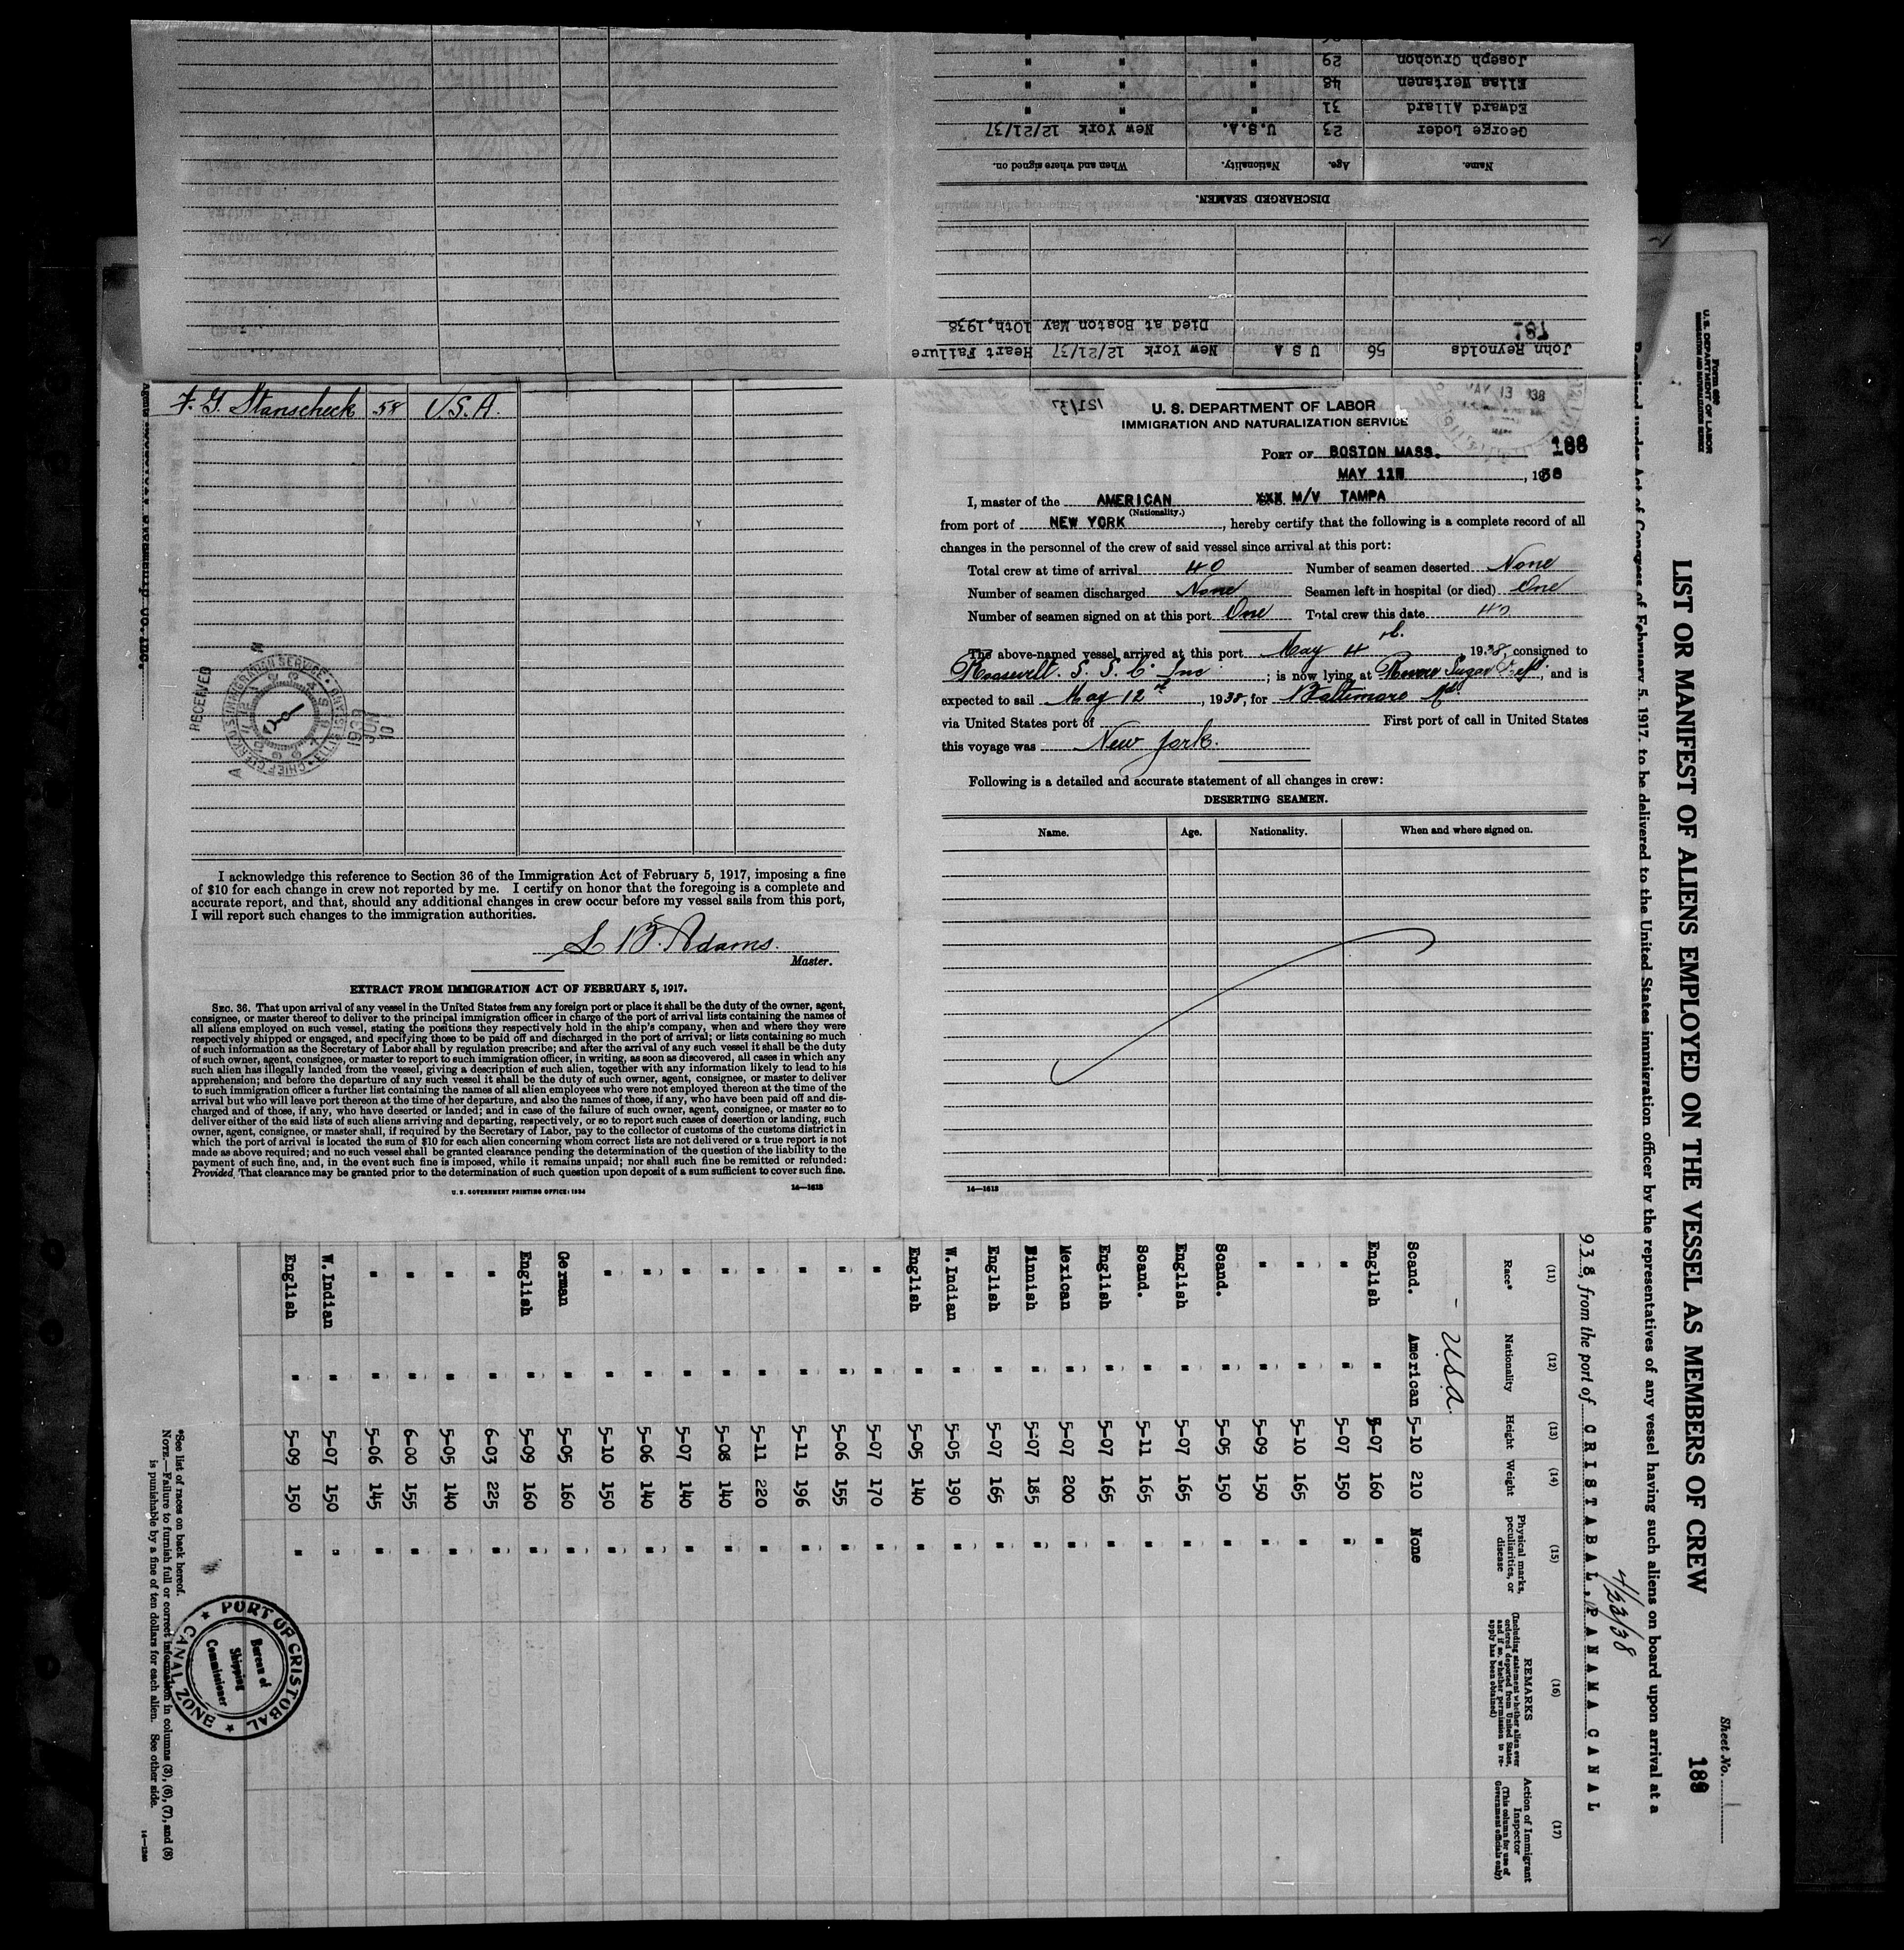 Joseph Cruchon 29 " " "
Elias Wertanen 48 " " "
Edward Allard 31 " " "
George Loder 23 U.S.A. New York 12/21/37
Name. Age. Nationality. When and where signed on.
DISCHARGED SEAMEN.
Died at Boston May 10th, 1938
John Reynolds 56 U S A New York 12/21/37 Heart Failure
F. G. Stanscheck 58 U.S.A.
RECEIVED
1938 JUN 10
I acknowledge this reference to Section 36 of the Immigration Act of February 5, 1917, imposing a fine
of $10 for each change in crew not reported by me. I certify on honor that the foregoing is a complete and
accurate report, and that, should any additional changes in crew occur before my vessel sails from this port,
I will report such changes to the immigration authorities.
L B. Adams.
Master.
EXTRACT FROM IMMIGRATION ACT OF FEBRUARY 5, 1917.
SEC. 36. That upon arrival of any vessel in the United States from any foreign port or place it shall be the duty of the owner, agent,
consignee, or master thereof to deliver to the principal immigration officer in charge of the port of arrival lists containing the names of
all aliens employed on such vessel, stating the positions they respectively hold in the ship's company, when and where they were
respectively shipped or engaged, and specifying those to be paid off and discharged in the port of arrival; or lists containing so much
of such information as the Secretary of Labor shall by regulation prescribe; and after the arrival of any such vessel it shall be the duty
of such owner, agent, consignee, or master to report to such immigration officer, in writing, as soon as discovered, all cases in which any
such alien has illegally landed from the vessel, giving a description of such alien, together with any information likely to lead to his
apprehension; and before the departure of any such vessel it shall be the duty of such owner, agent, consignee, or master to deliver
to such immigration officer a further list containing the names of all alien employees who were not employed thereon at the time of the
arrival but who will leave port thereon at the time of her departure, and also the names of those, if any, who have been paid off and dis-
charged and of those, if any, who have deserted or landed; and in case of the failure of such owner, agent, consignee, or master so to
deliver either of the said lists of such aliens arriving and departing, respectively, or so to report such cases of desertion or landing, such
owner, agent, consignee, or master shall, if required by the Secretary of Labor, pay to the collector of customs of the customs district in
which the port of arrival is located the sum of $10 for each alien concerning whom correct lists are not delivered or a true report is not
made as above required; and no such vessel shall be granted clearance pending the determination of the question of the liability to the
payment of such fine, and, in the event such fine is imposed, while it remains unpaid; nor shall such fine be remitted or refunded:
Provided, That clearance may be granted prior to the determination of such question upon deposit of a sum sufficient to cover such fine.
U. S. GOVERNMENT PRINTING OFFICE: 1934 14—1613
MAY 13 938
U. S. DEPARTMENT OF LABOR
IMMIGRATION AND NATURALIZATION SERVICE
PORT OF BOSTON MASS.
MAY 11, 1938
I, master of the AMERICAN XXX M/V TAMPA
(Nationality.)
from port of NEW YORK, hereby certify that the following is a complete record of all
changes in the personnel of the crew of said vessel since arrival at this port:
Total crew at time of arrival 40 Number of seamen deserted None
Number of seamen discharged None Seamen left in hospital (or died) One
Number of seamen signed on at this port One Total crew this date 40
The above-named vessel arrived at this port May 4th, 1938, consigned to
Roosevelt. S. S. C Inc; is now lying at Sugar Ref; and is
expected to sail May 12th, 1938, for Baltimore Md
via United States port of First port of call in United States
this voyage was New York.
Following is a detailed and accurate statement of all changes in crew:
DESERTING SEAMEN.
Name. Age. Nationality. When and where signed on.
14—1613
Form 680
U. S. DEPARTMENT OF LABOR
IMMIGRATION AND NATURALIZATION SERVICE
Sheet No. 1
LIST OR MANIFEST OF ALIENS EMPLOYED ON THE VESSEL AS MEMBERS OF CREW
Required under Act of Congress of February 5, 1917, to be delivered to the United States immigration officer by the representatives of any vessel having such aliens on board upon arrival at a
4/23/38
938, from the port of CRISTABAL, PANAMA CANAL
(11) (12) (13) (14) (15) (16) (17)
Race* Nationality Height Weight Physical marks, peculiarities, or disease REMARKS (Including statement whether alien ever ordered deported from United States, and if so, whether permission to reapply has been obtained) Action of Immigrant Inspector (This column for use of Government officials only)
- USA.
Scand. American 5-10 210 None
English " 5-07 160 "
" " 5-07 150 "
" " 5-10 165 "
" " 5-09 150 "
Scand. " 5-05 150 "
English " 5-07 165 "
Scand. " 5-11 165 "
English " 5-07 165 "
Mexican " 5-07 200 "
Finnish " 5-07 185 "
English " 5-07 165 "
W. Indian " 5-05 190 "
English " 5-05 140 "
" " 5-07 170 "
" " 5-06 155 "
" " 5-11 196 "
" " 5-11 220 "
" " 5-08 140 "
" " 5-07 140 "
" " 5-06 140 "
" " 5-10 150 "
German " 5-05 160 "
English " 5-09 160 "
" " 6-03 225 "
" " 5-05 140 "
" " 6-00 155 "
" " 5-06 145 "
W. Indian " 5-07 150 "
English " 5-09 150 "
*See list of races on back hereof.
NOTE.—Failure to furnish full or correct information in columns (3), (6), (7), and (8)
is punishable by a fine of ten dollars for each alien. See other side.
14—1240
PORT OF CRISTOBAL
CANAL ZONE
Bureau of
Shipping
Commissioner